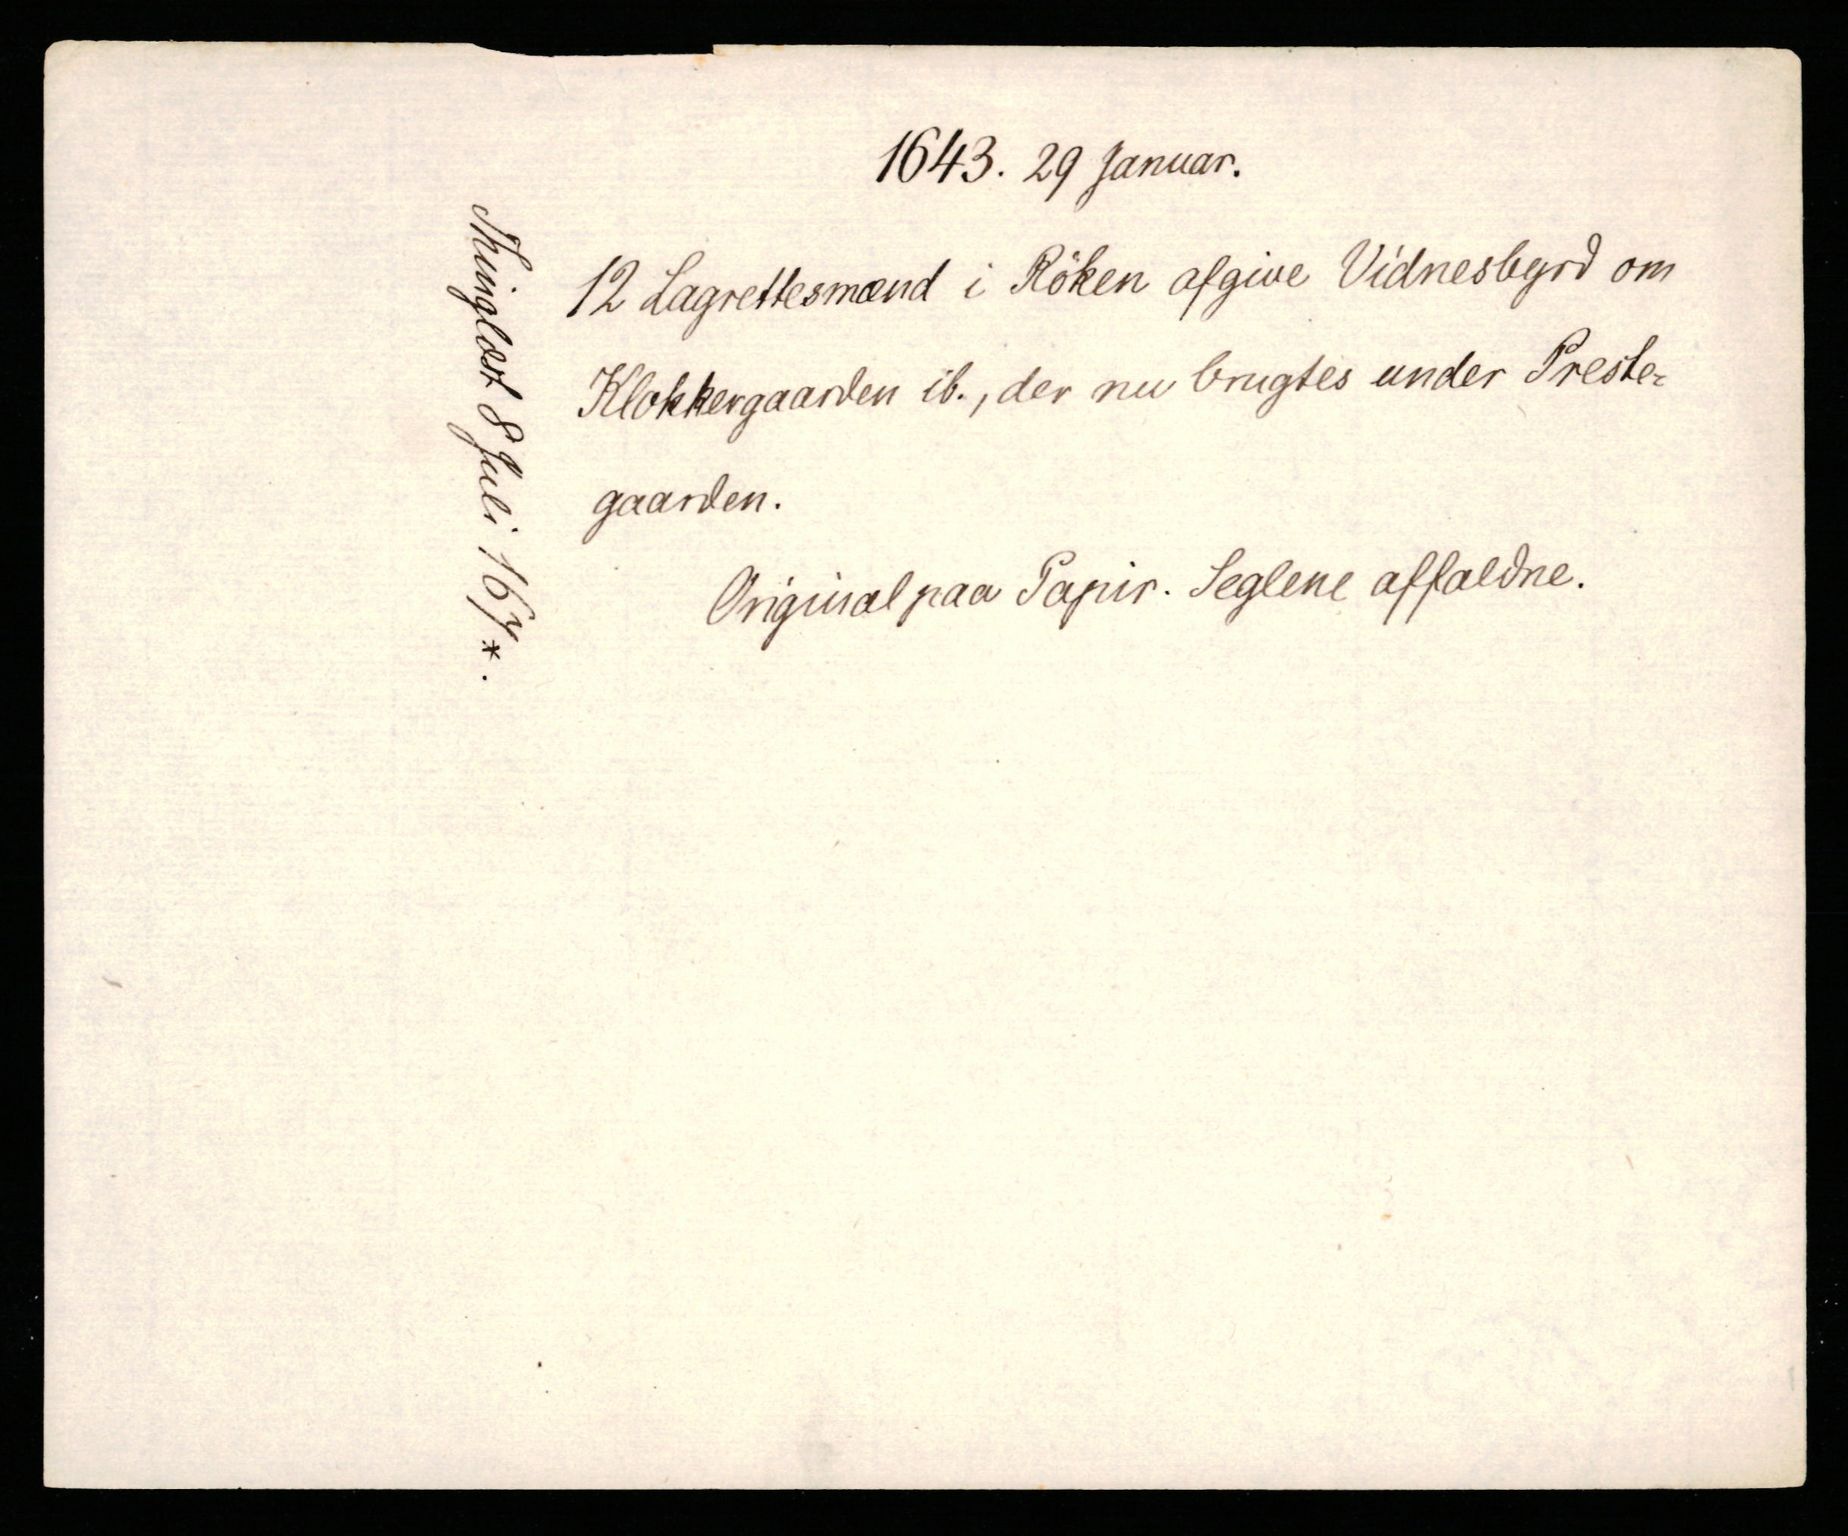 1643. 29 Januar.
12 Lagrettesmænd i Röken afgive Vidnesbyrd om
Klokkergaarden ib., der nu brugtes under Preste-
gaarden.
Original paa Papir. Seglene affaldne.
Thinglæst 8 Juli 167*.